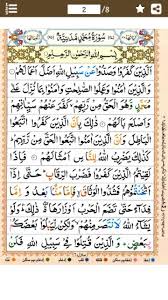 2 /8
سُورَةُ مُحَمَّدٍ مَدَنِيَّةٌ
بِسْمِ اللهِ الرَّحْمٰنِ الرَّحِيْمِ
اَلَّذِيْنَ كَفَرُوْا وَصَدُّوْا عَنْ سَبِيْلِ اللهِ اَضَلَّ اَعْمَالَهُمْ
وَالَّذِيْنَ اٰمَنُوْا وَعَمِلُوا الصّٰلِحٰتِ وَاٰمَنُوْا بِمَا نُزِّلَ عَلٰى
مُحَمَّدٍ وَّهُوَ الْحَقُّ مِنْ رَّبِّهِمْ كَفَّرَ عَنْهُمْ سَيِّاٰتِهِمْ
وَاَصْلَحَ بَالَهُمْ ذٰلِكَ بِاَنَّ الَّذِيْنَ كَفَرُوا اتَّبَعُوا
الْبَاطِلَ وَاَنَّ الَّذِيْنَ اٰمَنُوا اتَّبَعُوا الْحَقَّ مِنْ رَّبِّهِمْ
كَذٰلِكَ يَضْرِبُ اللهُ لِلنَّاسِ اَمْثَالَهُمْ فَاِذَا لَقِيْتُمُ
الَّذِيْنَ كَفَرُوْا فَضَرْبَ الرِّقَابِ حَتّٰى اِذَا
اَثْخَنْتُمُوْهُمْ فَشُدُّوا الْوَثَاقَ فَاِمَّا مَنًّا بَعْدُ وَاِمَّا
فِدَآءً حَتّٰى تَضَعَ الْحَرْبُ اَوْزَارَهَا ذٰلِكَ وَلَوْ
يَشَآءُ اللهُ لَانْتَصَرَ مِنْهُمْ وَلٰكِنْ لِّيَبْلُوَا بَعْضَكُمْ
بِبَعْضٍ وَالَّذِيْنَ قُتِلُوْا فِيْ سَبِيْلِ اللهِ فَلَنْ